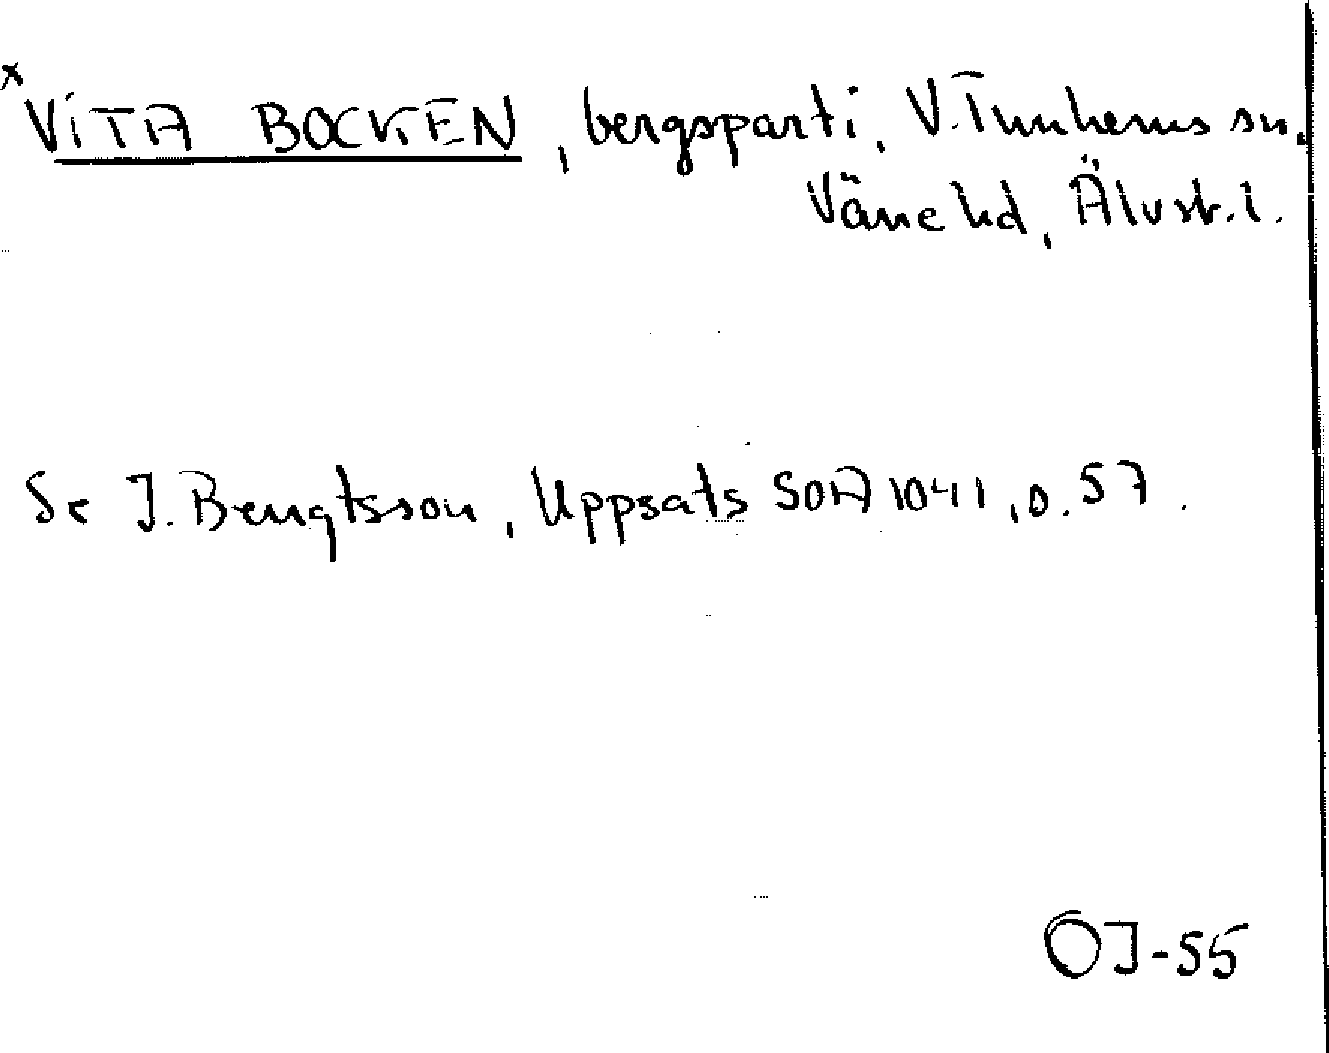 x VITA BOCKEN, bergsparti, V. Tunhems sn.
Väne hd, Älvsb. l.
Se J. Bengtsson, Uppsats SOA 1041, s. 57.
ÖJ-55